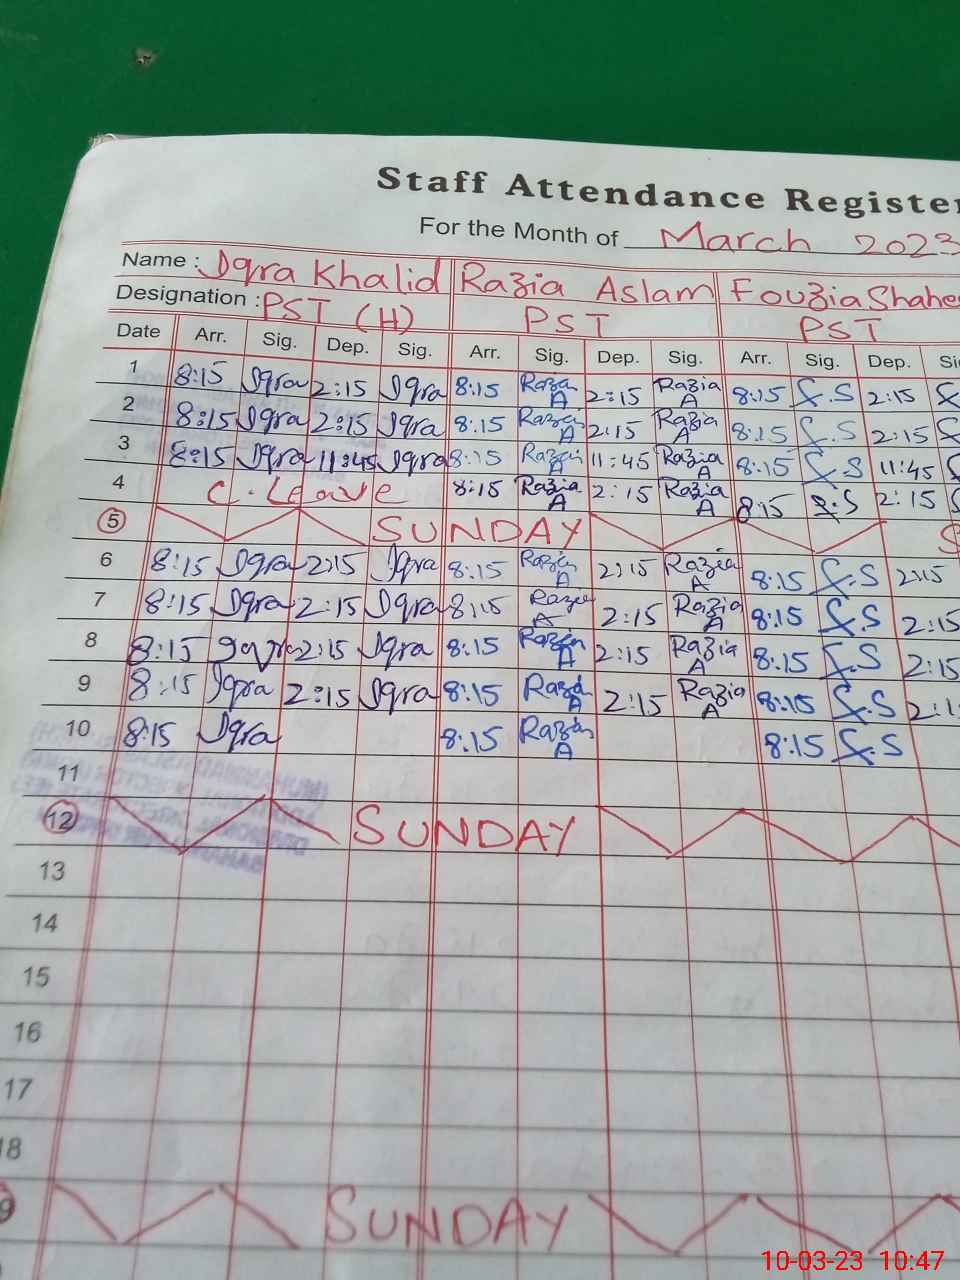 Staff Attendance Register
For the Month of March 2023
Name : Iqra Khalid Razia Aslam Fouzia Shahe
Designation : PST (H) PST PST
Date Arr. Sig. Dep. Sig. Arr. Sig. Dep. Sig. Arr. Sig. Dep. Si
1 8:15 Iqra 2:15 Iqra 8:15 Razia A 2:15 Razia A 8:15 S.S 2:15
2 8:15 Iqra 2:15 Iqra 8:15 Razia A 2:15 Razia A 8:15 S.S 2:15
3 8:15 Iqra 11:45 Iqra 8:15 Razia A 11:45 Razia A 8:15 S.S 11:45
4 C.Leave 8:15 Razia A 2:15 Razia A 8:15 S.S 2:15
5 SUNDAY S
6 8:15 Iqra 2:15 Iqra 8:15 Razia A 2:15 Razia A 8:15 S.S 2:15
7 8:15 Iqra 2:15 Iqra 8:15 Razia A 2:15 Razia A 8:15 S.S 2:15
8 8:15 Iqra 2:15 Iqra 8:15 Razia A 2:15 Razia A 8:15 S.S 2:15
9 8:15 Iqra 2:15 Iqra 8:15 Razia A 2:15 Razia A 8:15 S.S 2:1
10 8:15 Iqra 8:15 Razia A 8:15 S.S
11
12 SUNDAY
13
14
15
16
17
18
9 SUNDAY
10-03-23 10:47